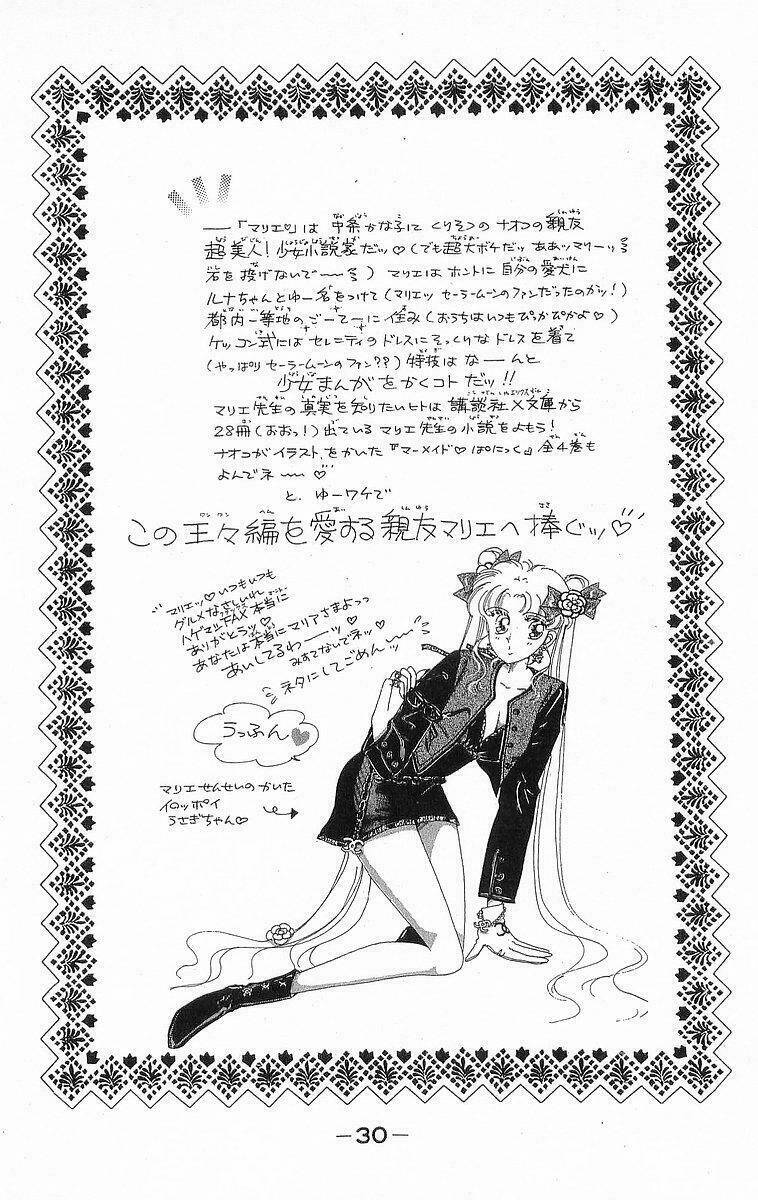 ——「マリエ」は 中条かな子に くりそつの ナオコの 親友
超美人！少女小説家だッ♡（でも超大ボケだッ ああッマリーッ
岩を投げないで〜〜）マリエは ホントに 自分の愛犬に
ルナちゃんとゆー名をつけて（マリエッ セーラームーンのファンだったのかッ！）
都内一等地の ごーてーに 住み（おうちはいつもぴかぴかよ♡）
ケッコン式には セレニティのドレスにそっくりな ドレスを着て
（やっぱり セーラームーンのファン??）特技は な——んと
少女まんが を かくコト だッ!!
マリエ先生の 真実を知りたいヒトは 講談社X文庫から
28冊（おおっ！）出ている マリエ先生の小説をよもう！
ナオコがイラストをかいた『マーメイド♡ぱにっく』全4巻も
よんでネ〜〜♡
と、ゆーワケで
この王々編を愛する親友マリエへ捧ぐッ♡
マリエッ♡いつもいつも
グルメなさしいれ
ハゲマシFAX 本当に
ありがとうッ♡
あなたは本当に マリアさまよっっ
あいしてるわーッ♡
みすてないでネッ♡
ネタにしてごめんッ
うっふん♥
マリエせんせいの かいた
イロッポイ
うさぎちゃん♡
—30—